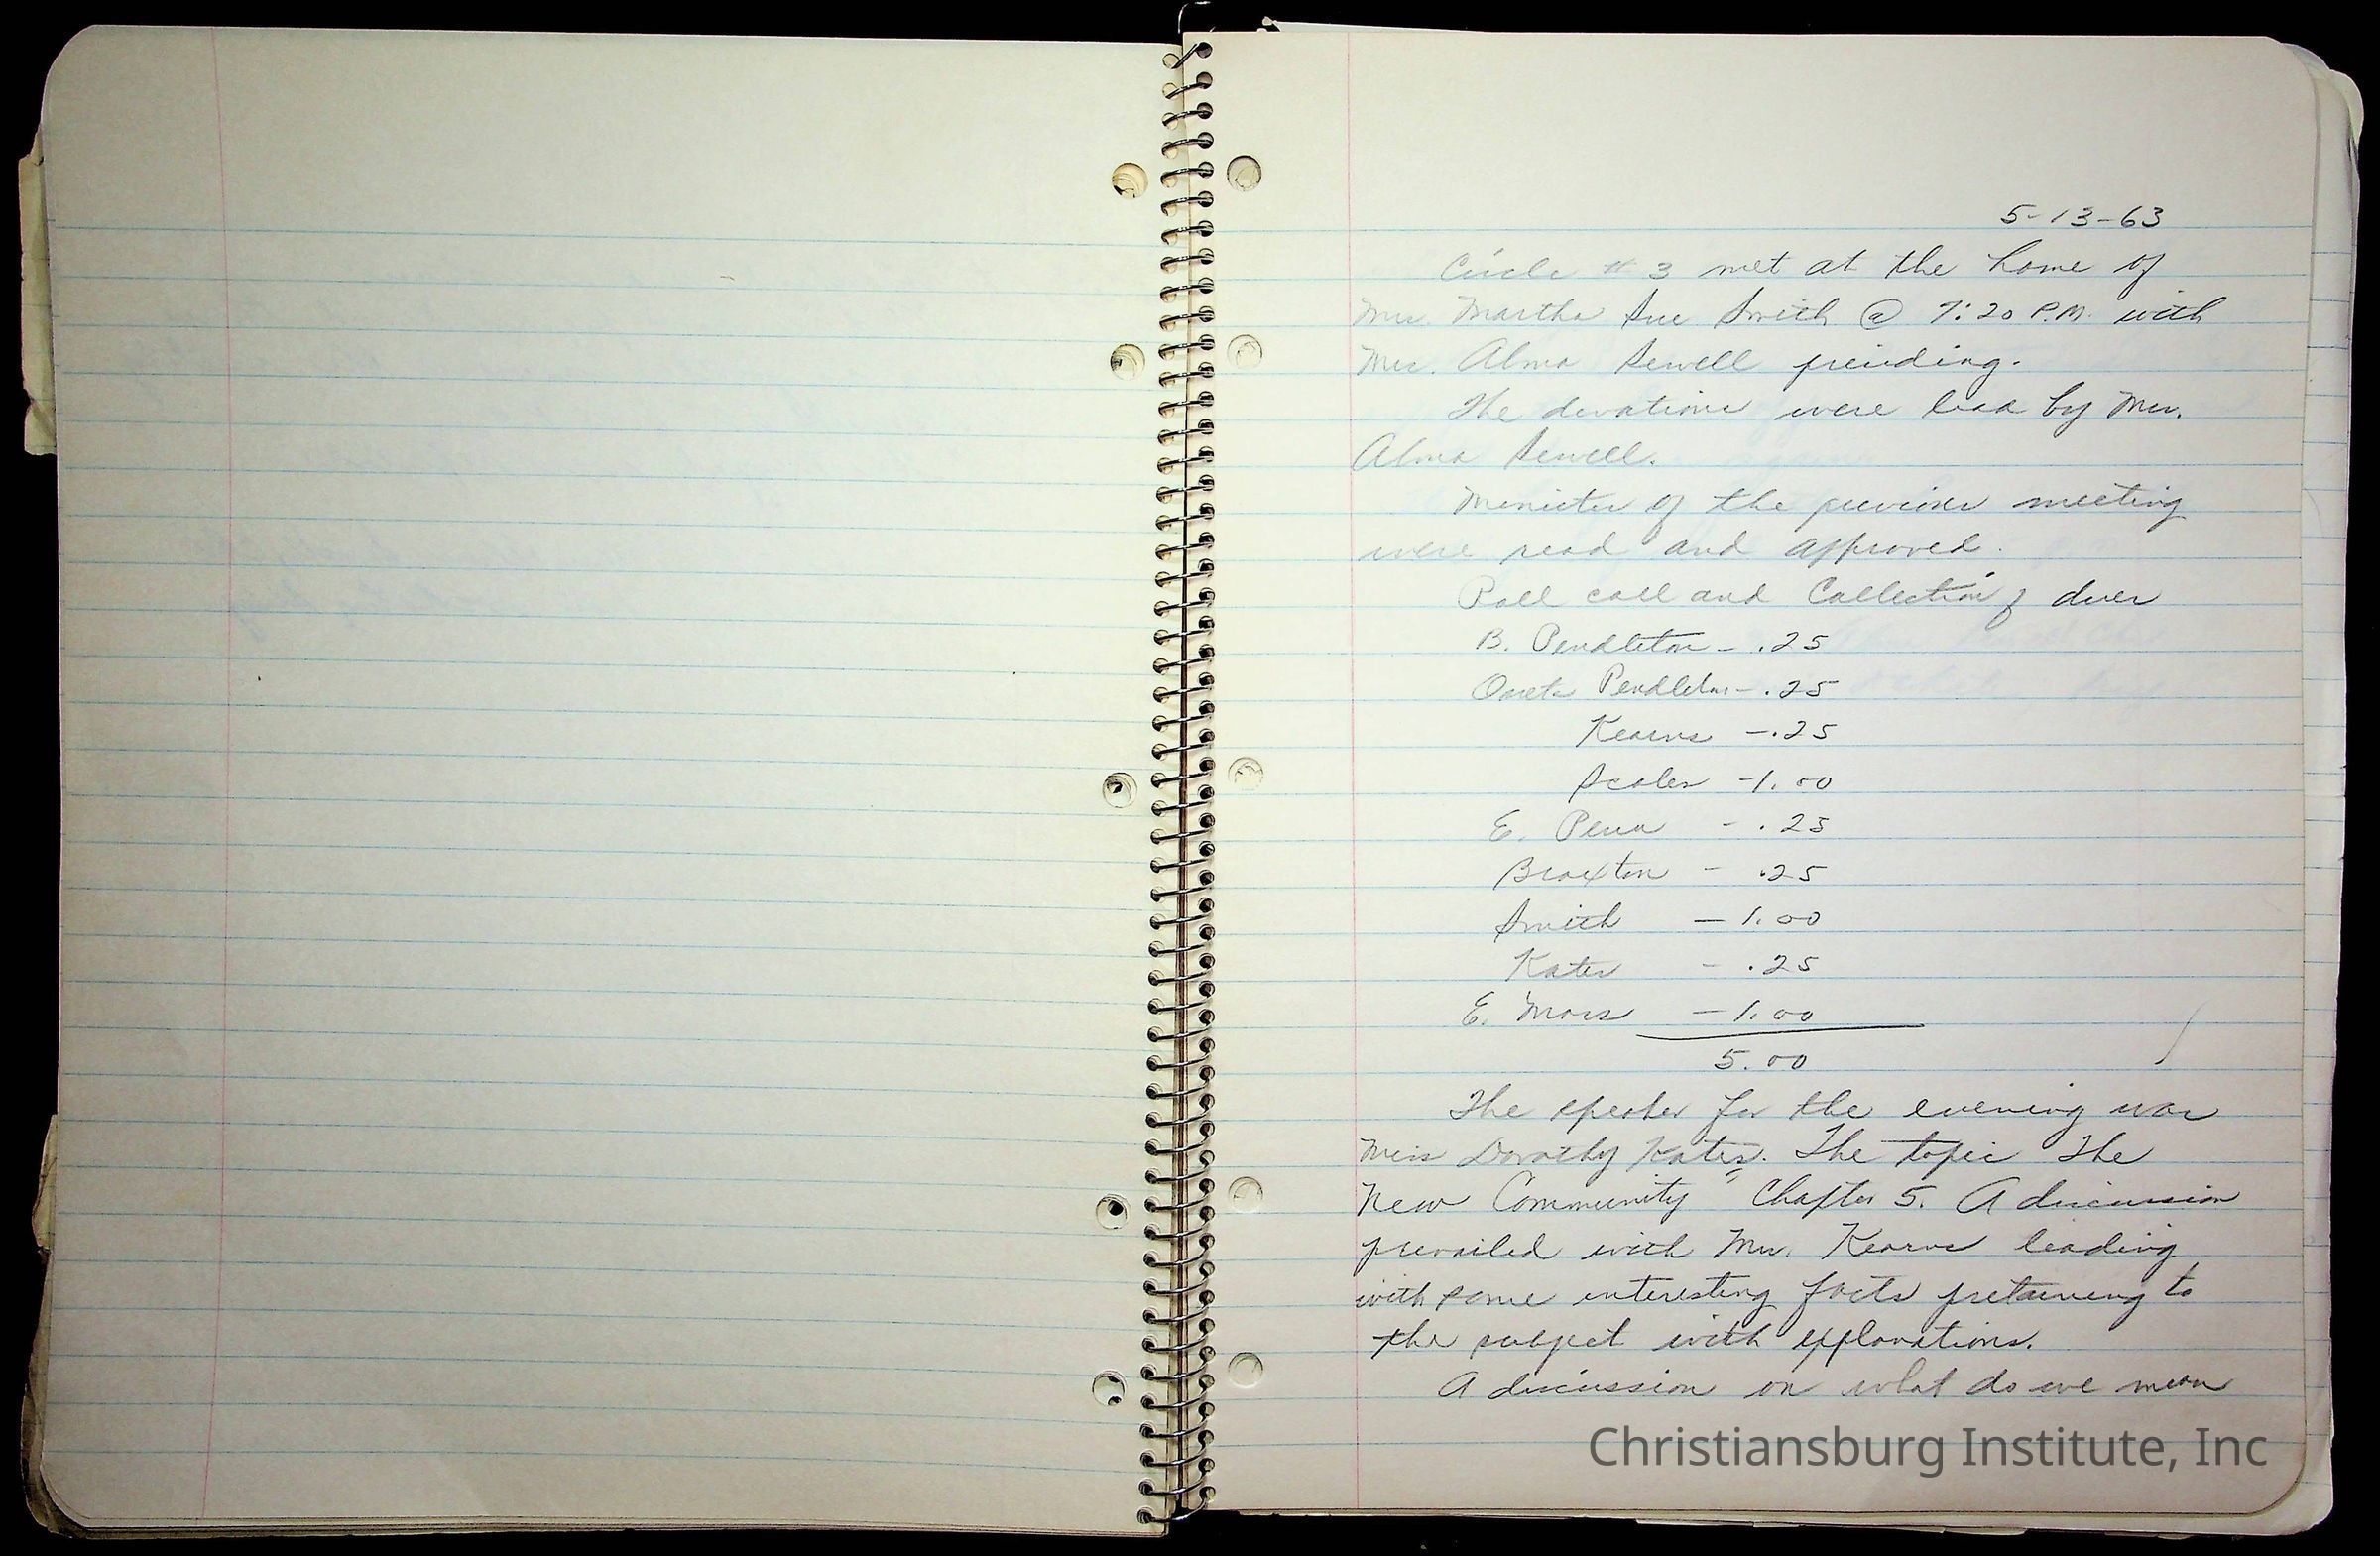 5-13-63
Circle # 3 met at the home of
Mrs. Martha Sue Smith @ 7:20 P.M. with
Mrs. Alma Sewell presiding.
The devotions were lead by Mrs.
Alma Sewell.
Minutes of the previous meeting
were read and approved.
Roll call and Collection of dues
B. Pendleton - .25
Oneta Pendleton - .25
Kearns - .25
Scales - 1.00
E. Penn - .25
Braxton - .25
Smith - 1.00
Kates - .25
E. Moss - 1.00
5.00
The speaker for the evening was
Miss Dorothy Kates. The topic The
New Community" Chapter 5. A discussion
prevailed with Mrs. Kearns leading
with some interesting facts pretaining to
the subject with explanations.
A discussion on what do we mean
Christiansburg Institute, Inc